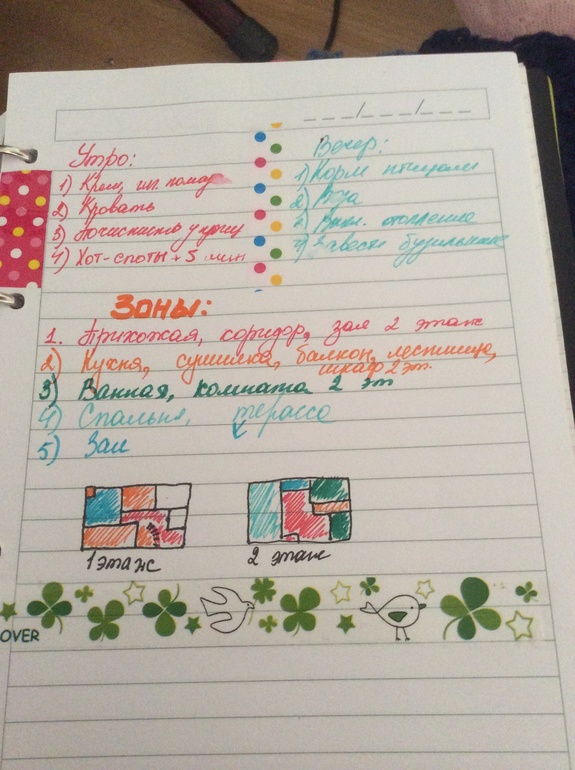 _ _ _/_ _ _/_ _ _
Утро:
1) Крем, гиг. помад
2) Кровать
3)
4) Хот-споты + 5 мин
Вечер:
1) Корм птицам
2) Вода
3) Выкл. отопление
4) Завести будильник
Зоны:
1. Прихожая, коридор, зал 2 этаж
2) Кухня, сушилка, балкон, лестница,
шкаф 2 эт.
3) Ванная, комната 2 эт
4) Спальня, терасса
5) Зал
1 этаж
2 этаж
OVER